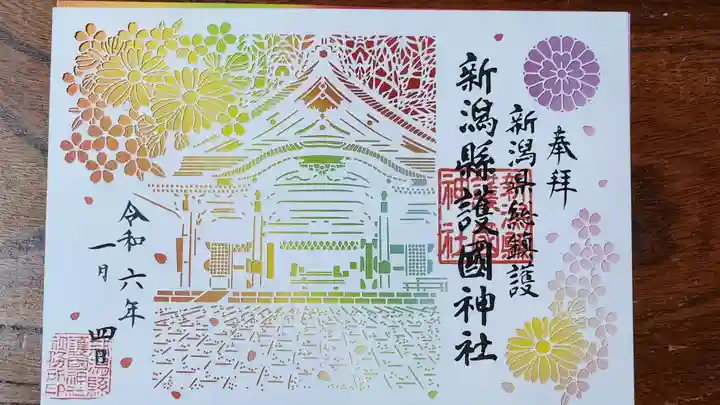 奉拝
新潟県総鎮護
新潟縣護國神社
新潟縣
護國
神社
令和六年
一月 四日